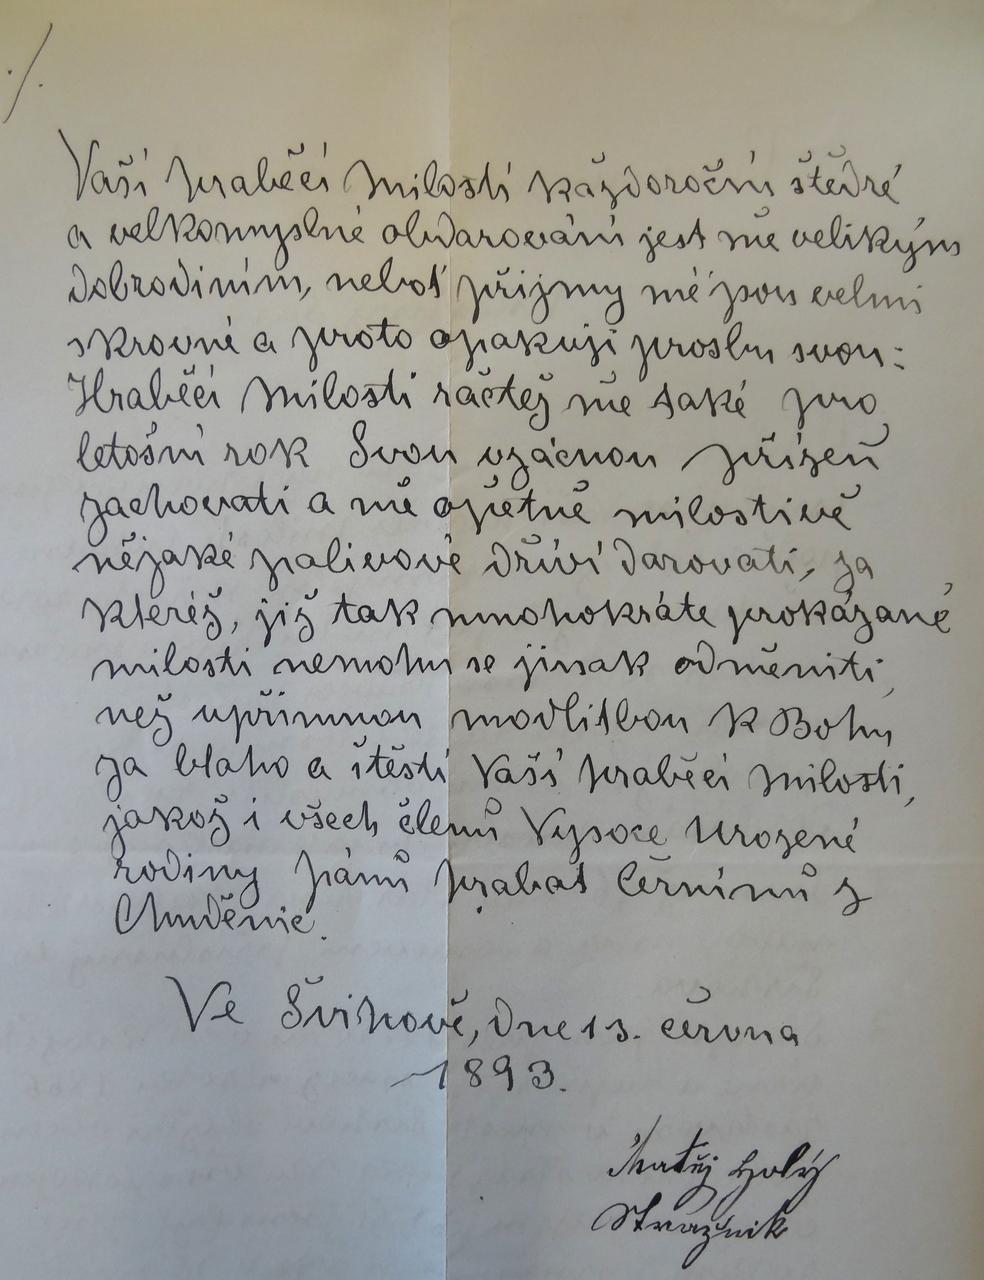 Vaší hraběcí Milostí každoroční štědré
a velkomyslné obdarování jest mě velikým
dobrodiním, neboť příjmy mé jsou velmi
skrovné a proto opakuji prosbu svou:
Hraběcí Milosti račtež mě také pro
letošní rok Svou vzácnou přízeň
zachovati a mě opětně milostivě
nějaké palivové dříví darovati, za
kteréž, již tak mnohokráte prokázané
milosti nemohu se jinak odměniti,
než upřímnou modlitbou k Bohu
za blaho a štěstí Vaší hraběcí Milosti,
jakož i všech členů Vysoce Urozené
rodiny pánů hrabat Černínů z
Chuděnic.
Ve Švihově, dne 13. června
1893.
Matěj Holý
Strážník